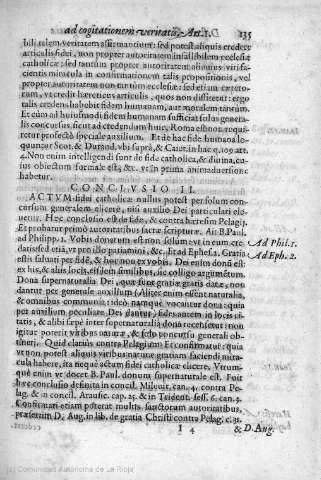 ad cogitationem veritatis, Art. I. D. 135
bilitatem veritatem assentiantur: sed potest aliquis credere
articulis fidei, non propter autoritatem infallibilem ecclesiæ
catholicæ: sed tantum propter autoritatem alicuius viri fa-
cientis miracula in confirmationem talis propositionis, vel
propter autoritatem non tantum ecclesiæ: sed etiam
rum, vt credit hæreticus articulis, quos non dissitetur: ergo
talis credens habebit fidem humanam, aut moralem tantum.
Et cùm ad huiusmodi fidem humanam sufficiat solus genera-
lis concursus, sicut ad credendum hinc, Romã esse: non requi-
ritur profectò speciale auxilium. Et de hac fide humana lo-
quuntur Scot. & Durand. vbi suprà, & Caiet. in hac q. 109. art.
4. Non enim intelligendi sunt de fide catholica, & diuina, cu-
ius obiectum formale est, &c. vt in prima animaduersione
habetur.
CONCLVSIO II.
ACTVM fidei catholicæ nullus potest per solum con-
cursum generalem elicere, nisi auxilio Dei particulari ele-
uetur. Hæc conclusio est de fide, & contra hæresim Pelagij.
Et probatur primò autoritatibus sacræ scripturæ. Ait B. Paul.
ad Philipp. 1. Vobis donatum est non solùm vt in eum cre-
datis sed etiã, vt pro illo patiamini, &c. Et ad Ephes. 2. Gratia
estis saluati per fidẽ, & hoc non ex vobis. Dei enim donũ est:
ex his, & aliis locis, eiusdem similibus, sic colligo argumentum.
Dona supernaturalia Dei, quæ sunt gratiæ gratis datæ, non
dantur per generale auxilium (Aliter enim essent naturalia,
& omnibus communia: ideò namque vocantur dona) quia
per auxilium peculiare Dei dantur; fides autem in locis ci-
tatis, & alibi sæpè inter supernaturalia dona recensetur: non
igitur poterit viribus naturæ, & solo concursu generali ob-
tineri. Quid clariùs contra Pelagium? Et confirmatur: quia
vt non potest aliquis viribus naturæ gratiam faciendi mira-
cula habere, ita neque actum fidei catholicæ elicere. Vtrum-
que enim vt docet B. Paul. donum supernaturale est. Fuit
hæc conclusio definita in concil. Mileuit. can. 4. contra Pe-
lag. & in concil. Arausic. cap. 25. & in Trident. sess. 6. can. 3.
Confirmari etiam poterat multis sanctorum autoritatibus,
præsertim D. Aug. in lib. de gratia Christi contra Pelag. c. 31.
I 4 & D. Aug.
Ad Phil. 1.
Ad Eph. 2.
(c) Comunidad Autónoma de La Rioja